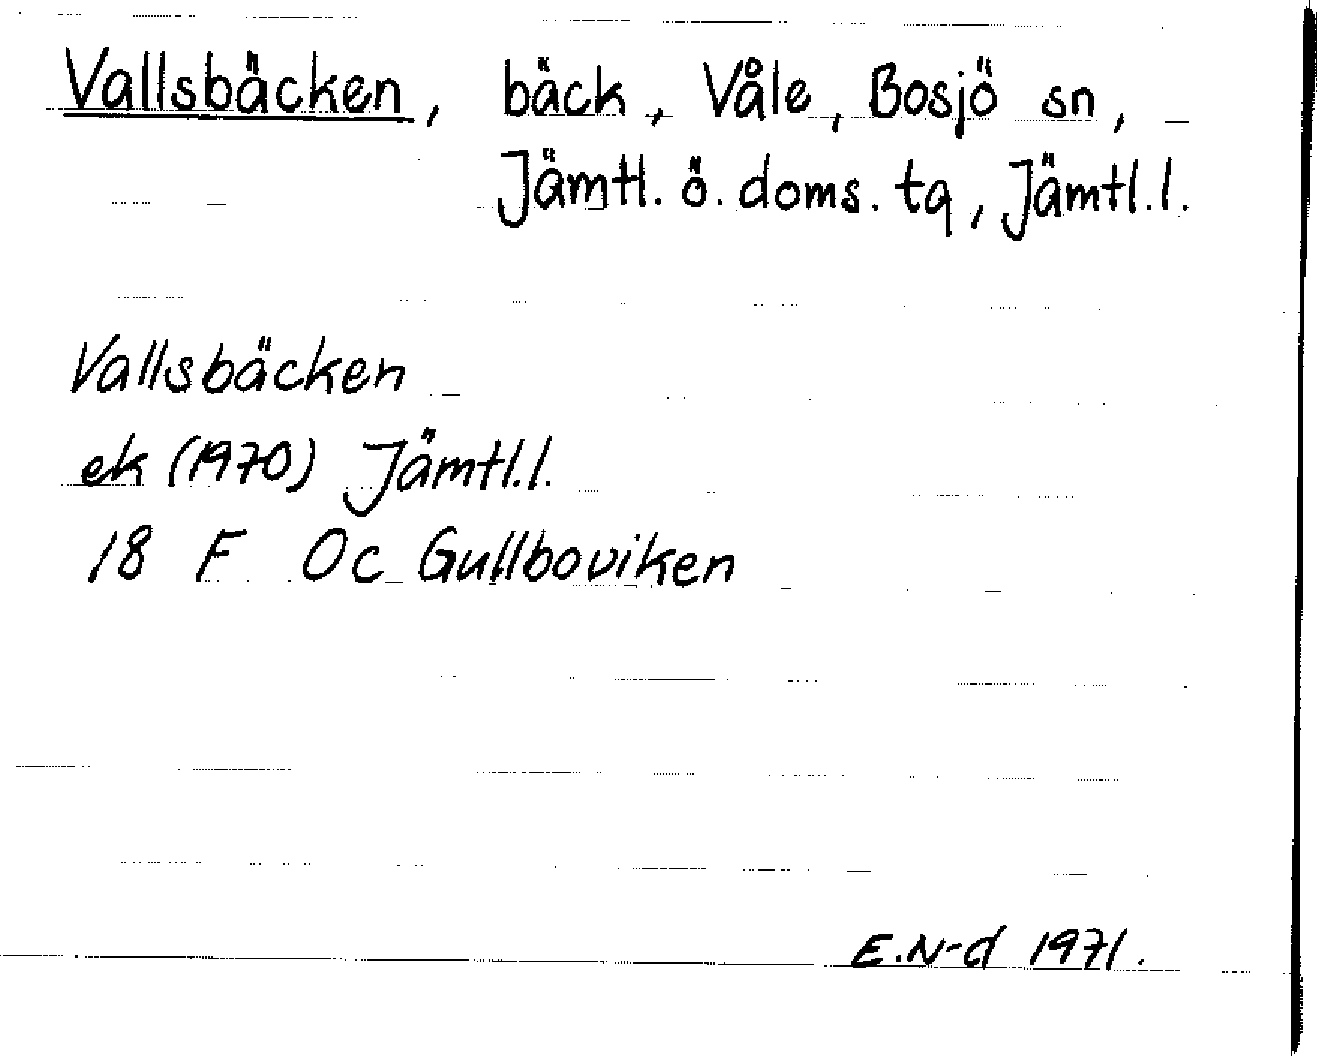 Vallsbäcken, bäck, Våle, Bosjö sn,
Jämtl. ö. doms. tg, Jämtl.l.
Vallsbäcken
ek (1970) Jämtl.l.
18 F Oc Gullboviken
E.N-d 1971.